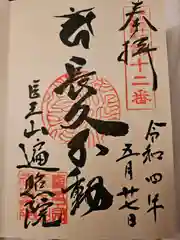 奉拝
十二番
令和四年
五月廿七日
長久不動
医王山遍照院